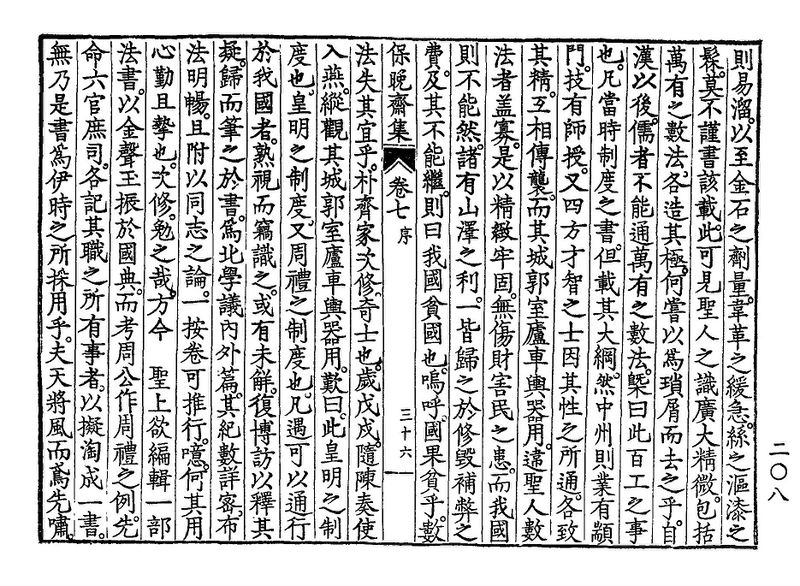 則易溜。以至金石之劑量。韋革之緩急。絲之漚漆之
髹。莫不謹書該載。此可見聖人之識廣大精微。包括
萬有之數法。各造其極。何嘗以爲瑣屑而去之乎。自
漢以後。儒者不能通萬有之數法。槩曰此百工之事
也。凡當時制度之書。但載其大綱。然中州則業有顓
門。技有師授。又四方才智之士因其性之所通。各致
其精。互相傳襲。而其城郭室廬車輿器用。違聖人數
法者盖寡。是以精緻牢固。無傷財害民之患。而我國
則不能然。諸有山澤之利。一皆歸之於修毀補弊之
費。及其不能繼。則曰我國貧國也。嗚呼。國果貧乎。數
保晚齋集 卷七 序 三十六
法失其宜乎。朴齊家次修。奇士也。歲戊戌。隨陳奏使
入燕。縱觀其城郭室廬車輿器用。歎曰。此皇明之制
度也。皇明之制度。又周禮之制度也。凡遇可以通行
於我國者。熟視而竊識之。或有未解。復博訪以釋其
疑。歸而筆之於書。爲北學議內外篇。其紀數詳密。布
法明暢。且附以同志之論。一按卷可推行。噫。何其用
心勤且摯也。次修。勉之哉。方今 聖上欲編輯一部
法書。以金聲玉振於國典。而考周公作周禮之例。先
命六官庶司。各記其職之所有事者。以擬淘成一書。
無乃是書爲伊時之所採用乎。夫天將風而鳶先嘯。
二〇八